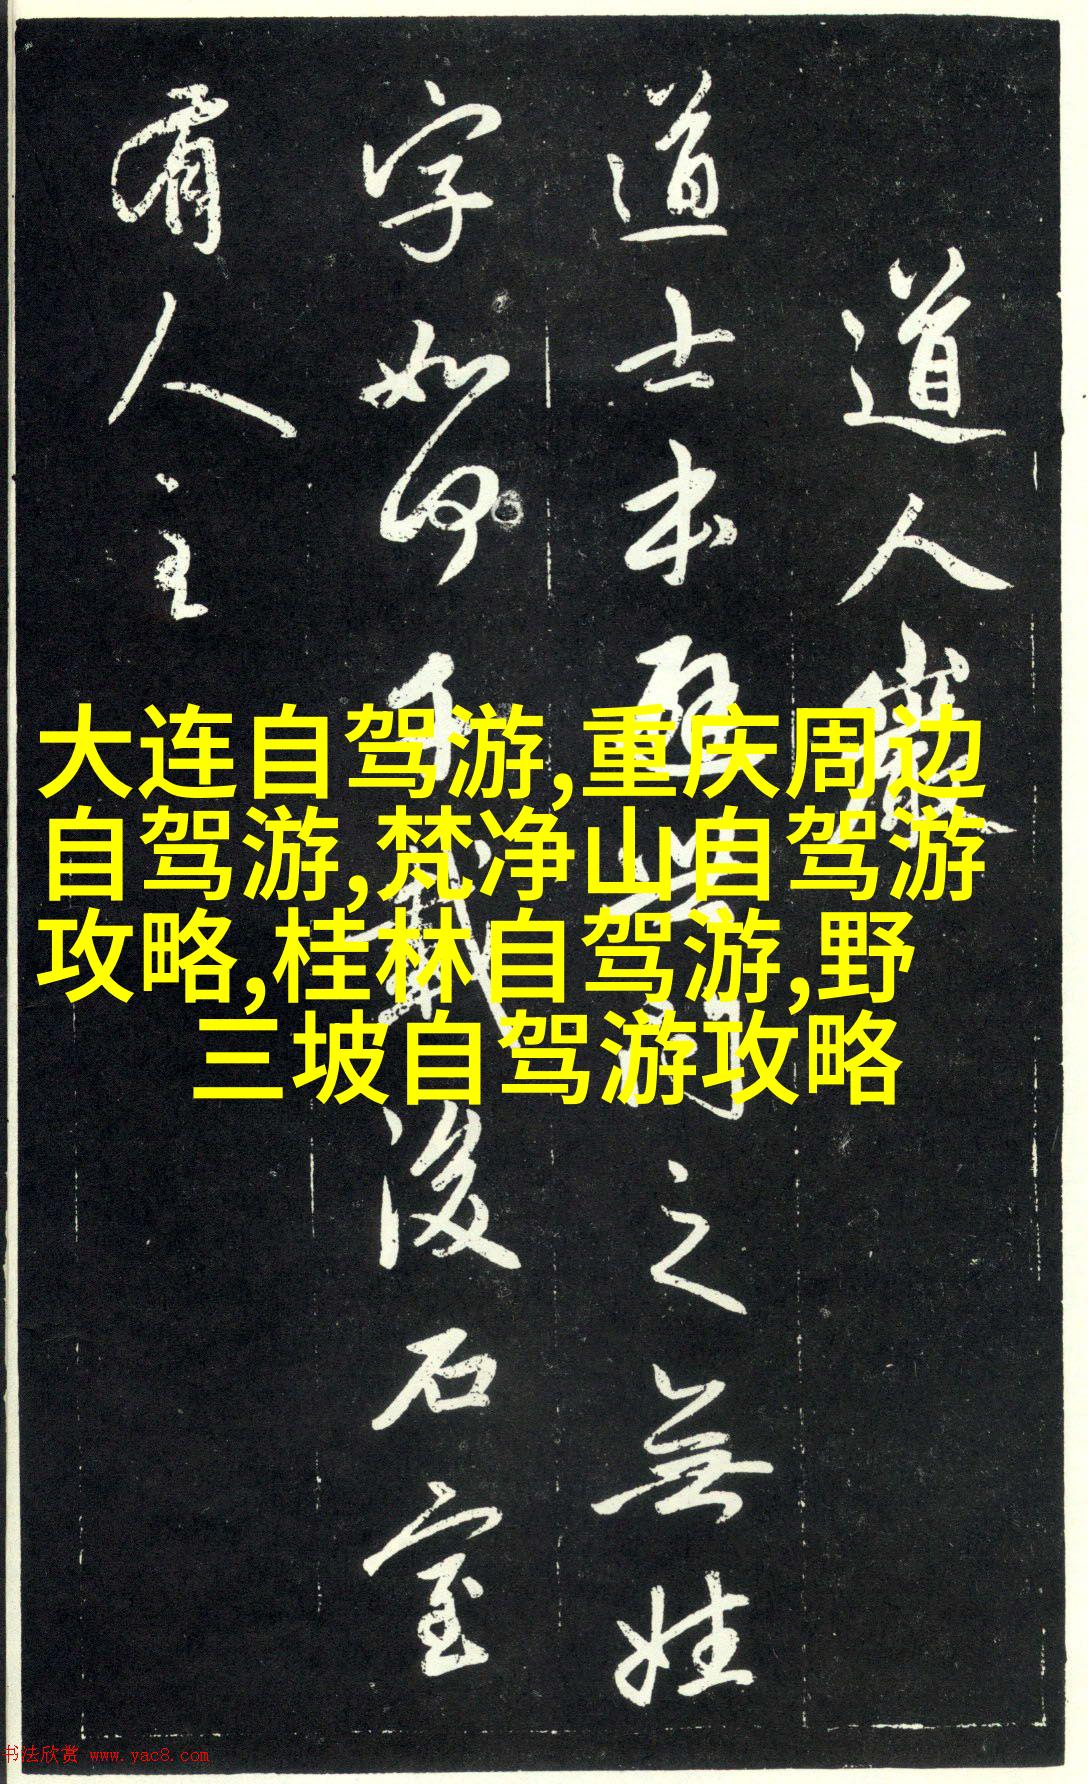 道人巖
道士本避世問之無姓
字如何千載後石室
有人主
大连自驾游,重庆周边
自驾游,梵净山自驾游
攻略,桂林自驾游,野
三坡自驾游攻略
书法欣赏 www.yac8.com